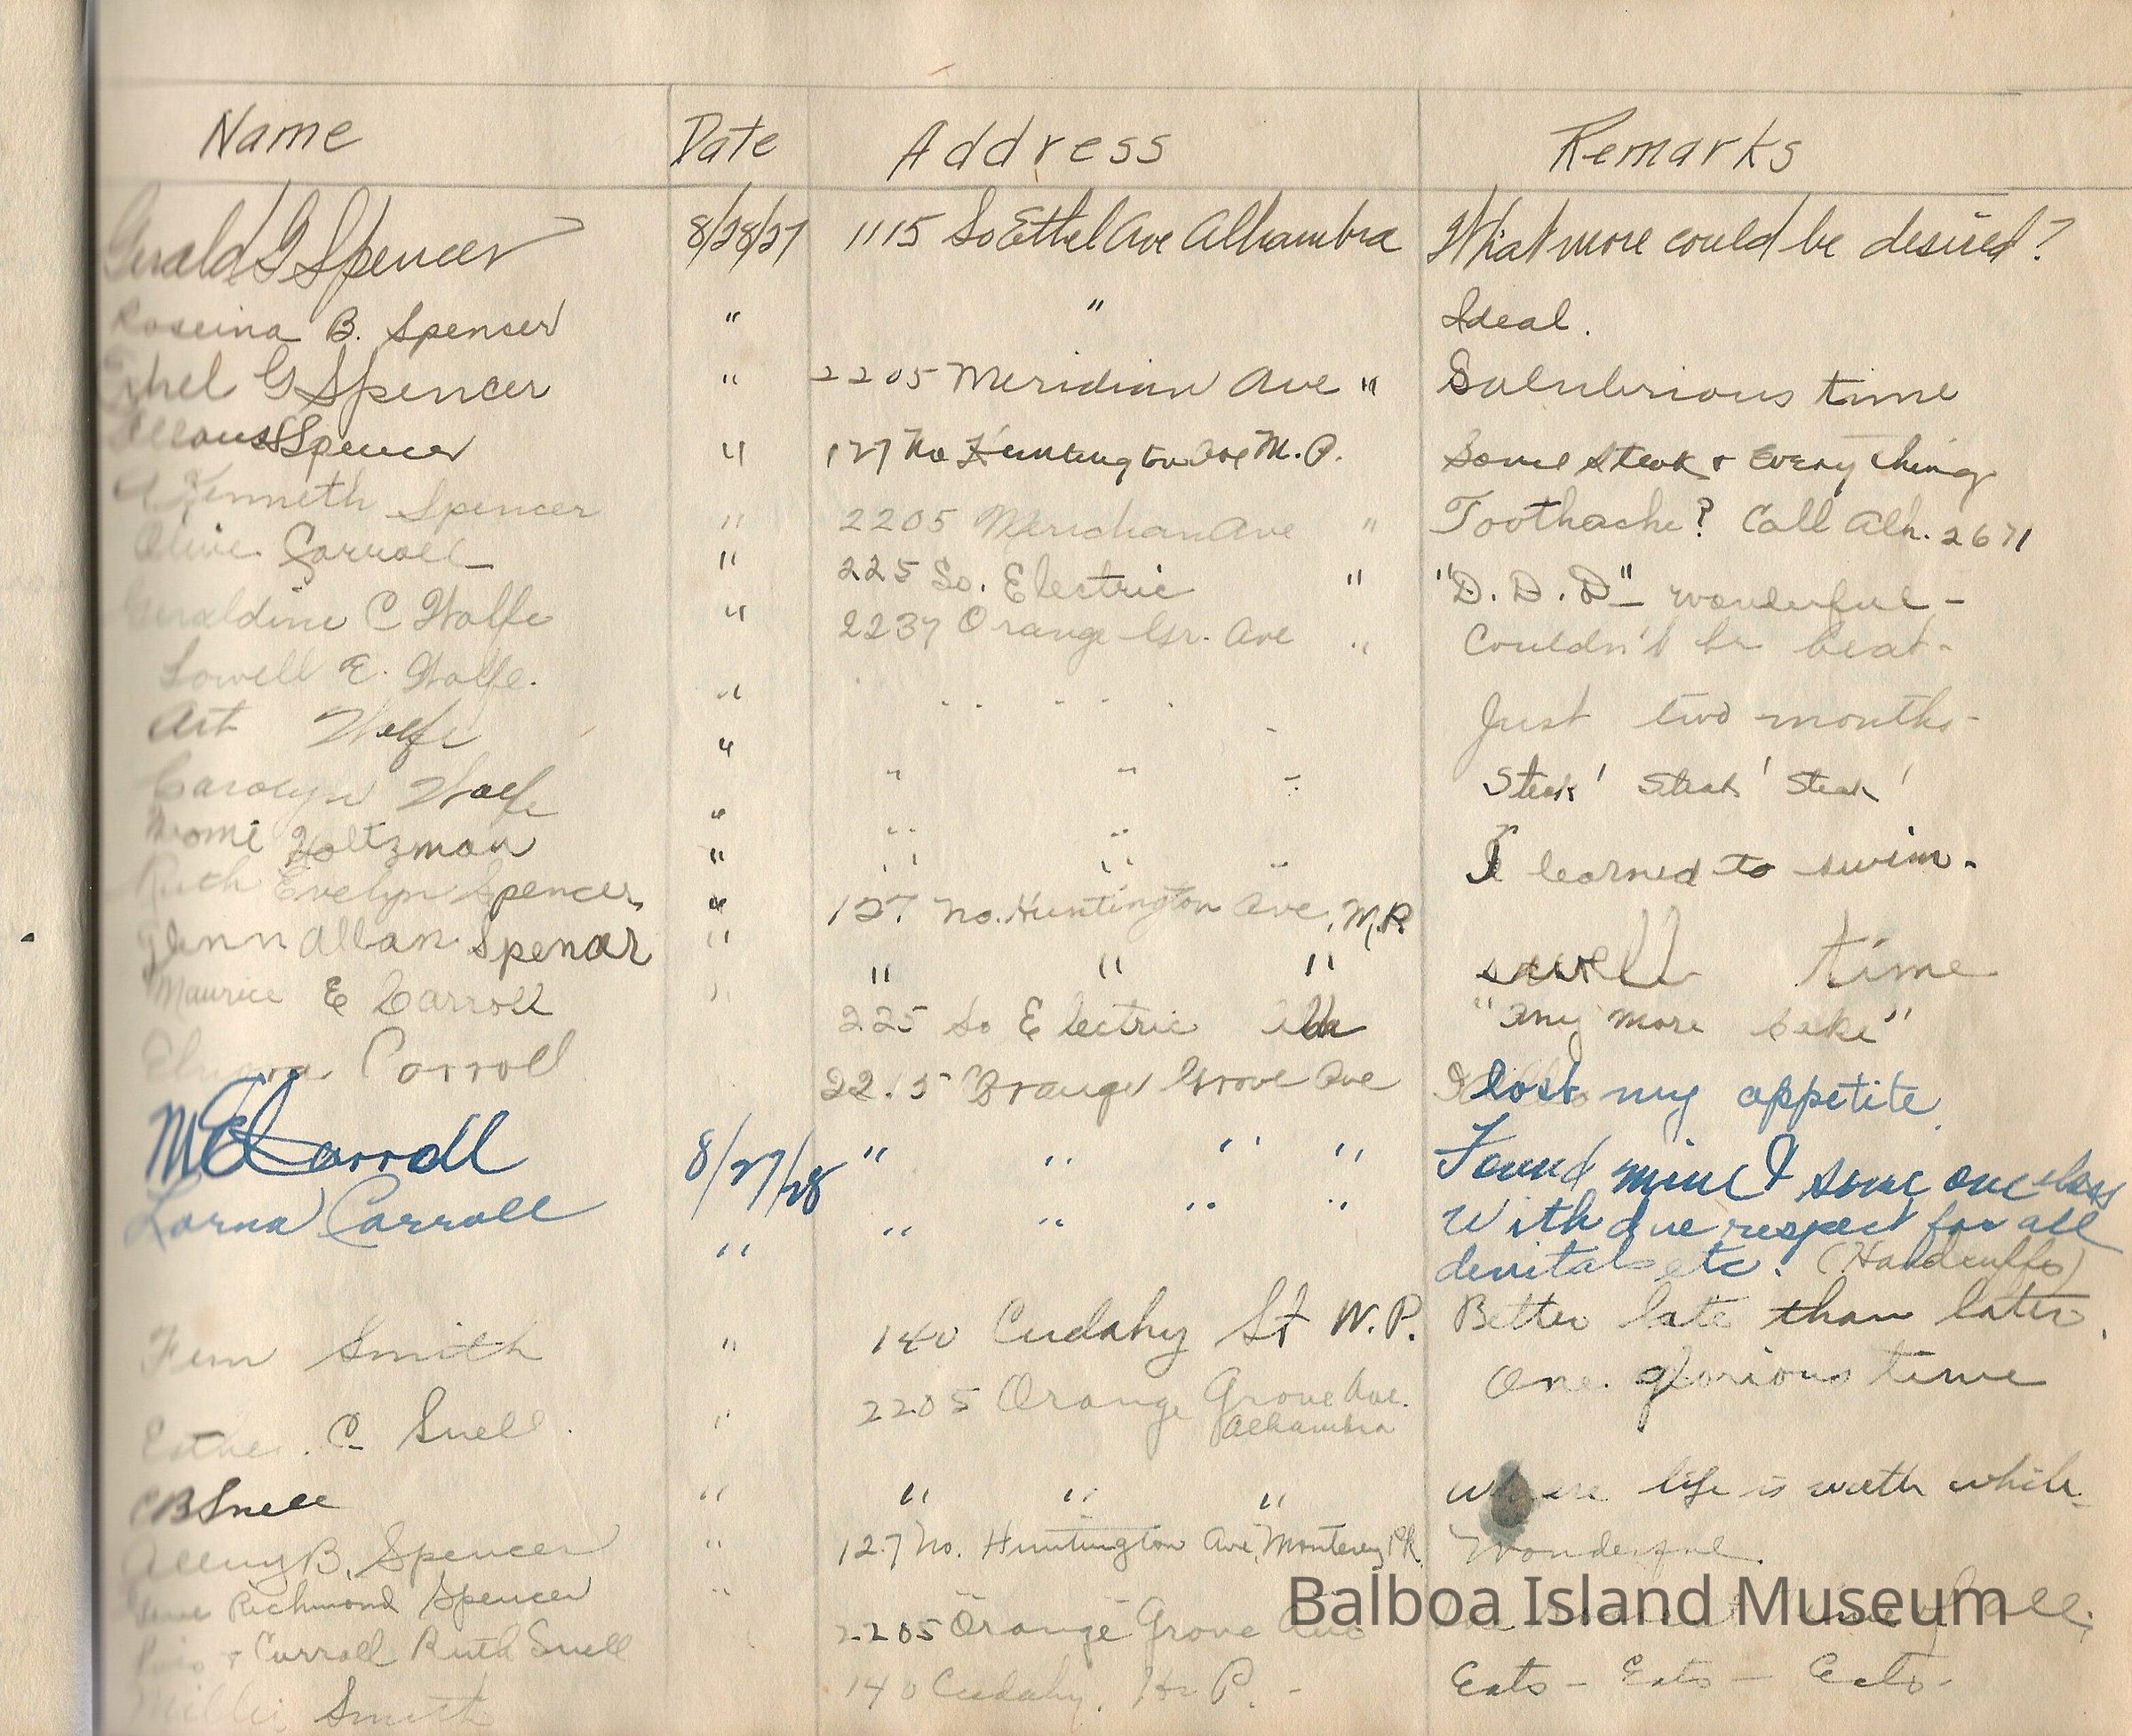 Name Date Address Remarks
Gerald G Spencer 8/28/27 1115 So Ethel Ave Alhambra What more could be desired?
Roseina B. Spencer " " Ideal.
Ethel G Spencer " 2205 Meridian Ave " Salubrious time
Spencer " 127 No Huntington Ave M.P. Some steak & Everything
Kenneth Spencer " 2205 Meridian Ave " Toothache? Call Alh. 2671
Olive Carroll " 225 So. Electric " "D. D. D" - wonderful -
Geraldine C Wolfe " 2237 Orange Gr. Ave " Couldn't be beat -
Lowell E. Wolfe. " Just two months -
Art Wolfe " Steak! Steak! Steak!
Carolyn Wolfe " " " "
Naomi Holtzman " " " " I learned to swim.
Ruth Evelyn Spencer " 127 No. Huntington Ave, M.P.
Glenn Allan Spencer " " " " swell time
Maurice E Carroll " 225 So Electric Alh "Any more cake"
Carroll 22 5 Orange Grove Ave I lost my appetite.
M E Carroll 8/27/28 " " " " Found mine & some one elses
Lorna Carroll " " " " " With due respect for all
etc. (Handcuffs)
Fern Smith " 140 Cudahy St W.P. Better late than later.
C Snell. " 2205 Orange Grove Ave. One glorious time
Alhambra
C B Snell " " " " Where life is worth while.
B. Spencer " 127 No. Huntington Ave, Monterey Pk Wonderful.
Richmond Spencer "
Balboa Island Museum
& Carroll Ruth Snell 2205 Orange Grove Ave
Smith 140 Cudahy. P. - Eats - Eats - Eats.